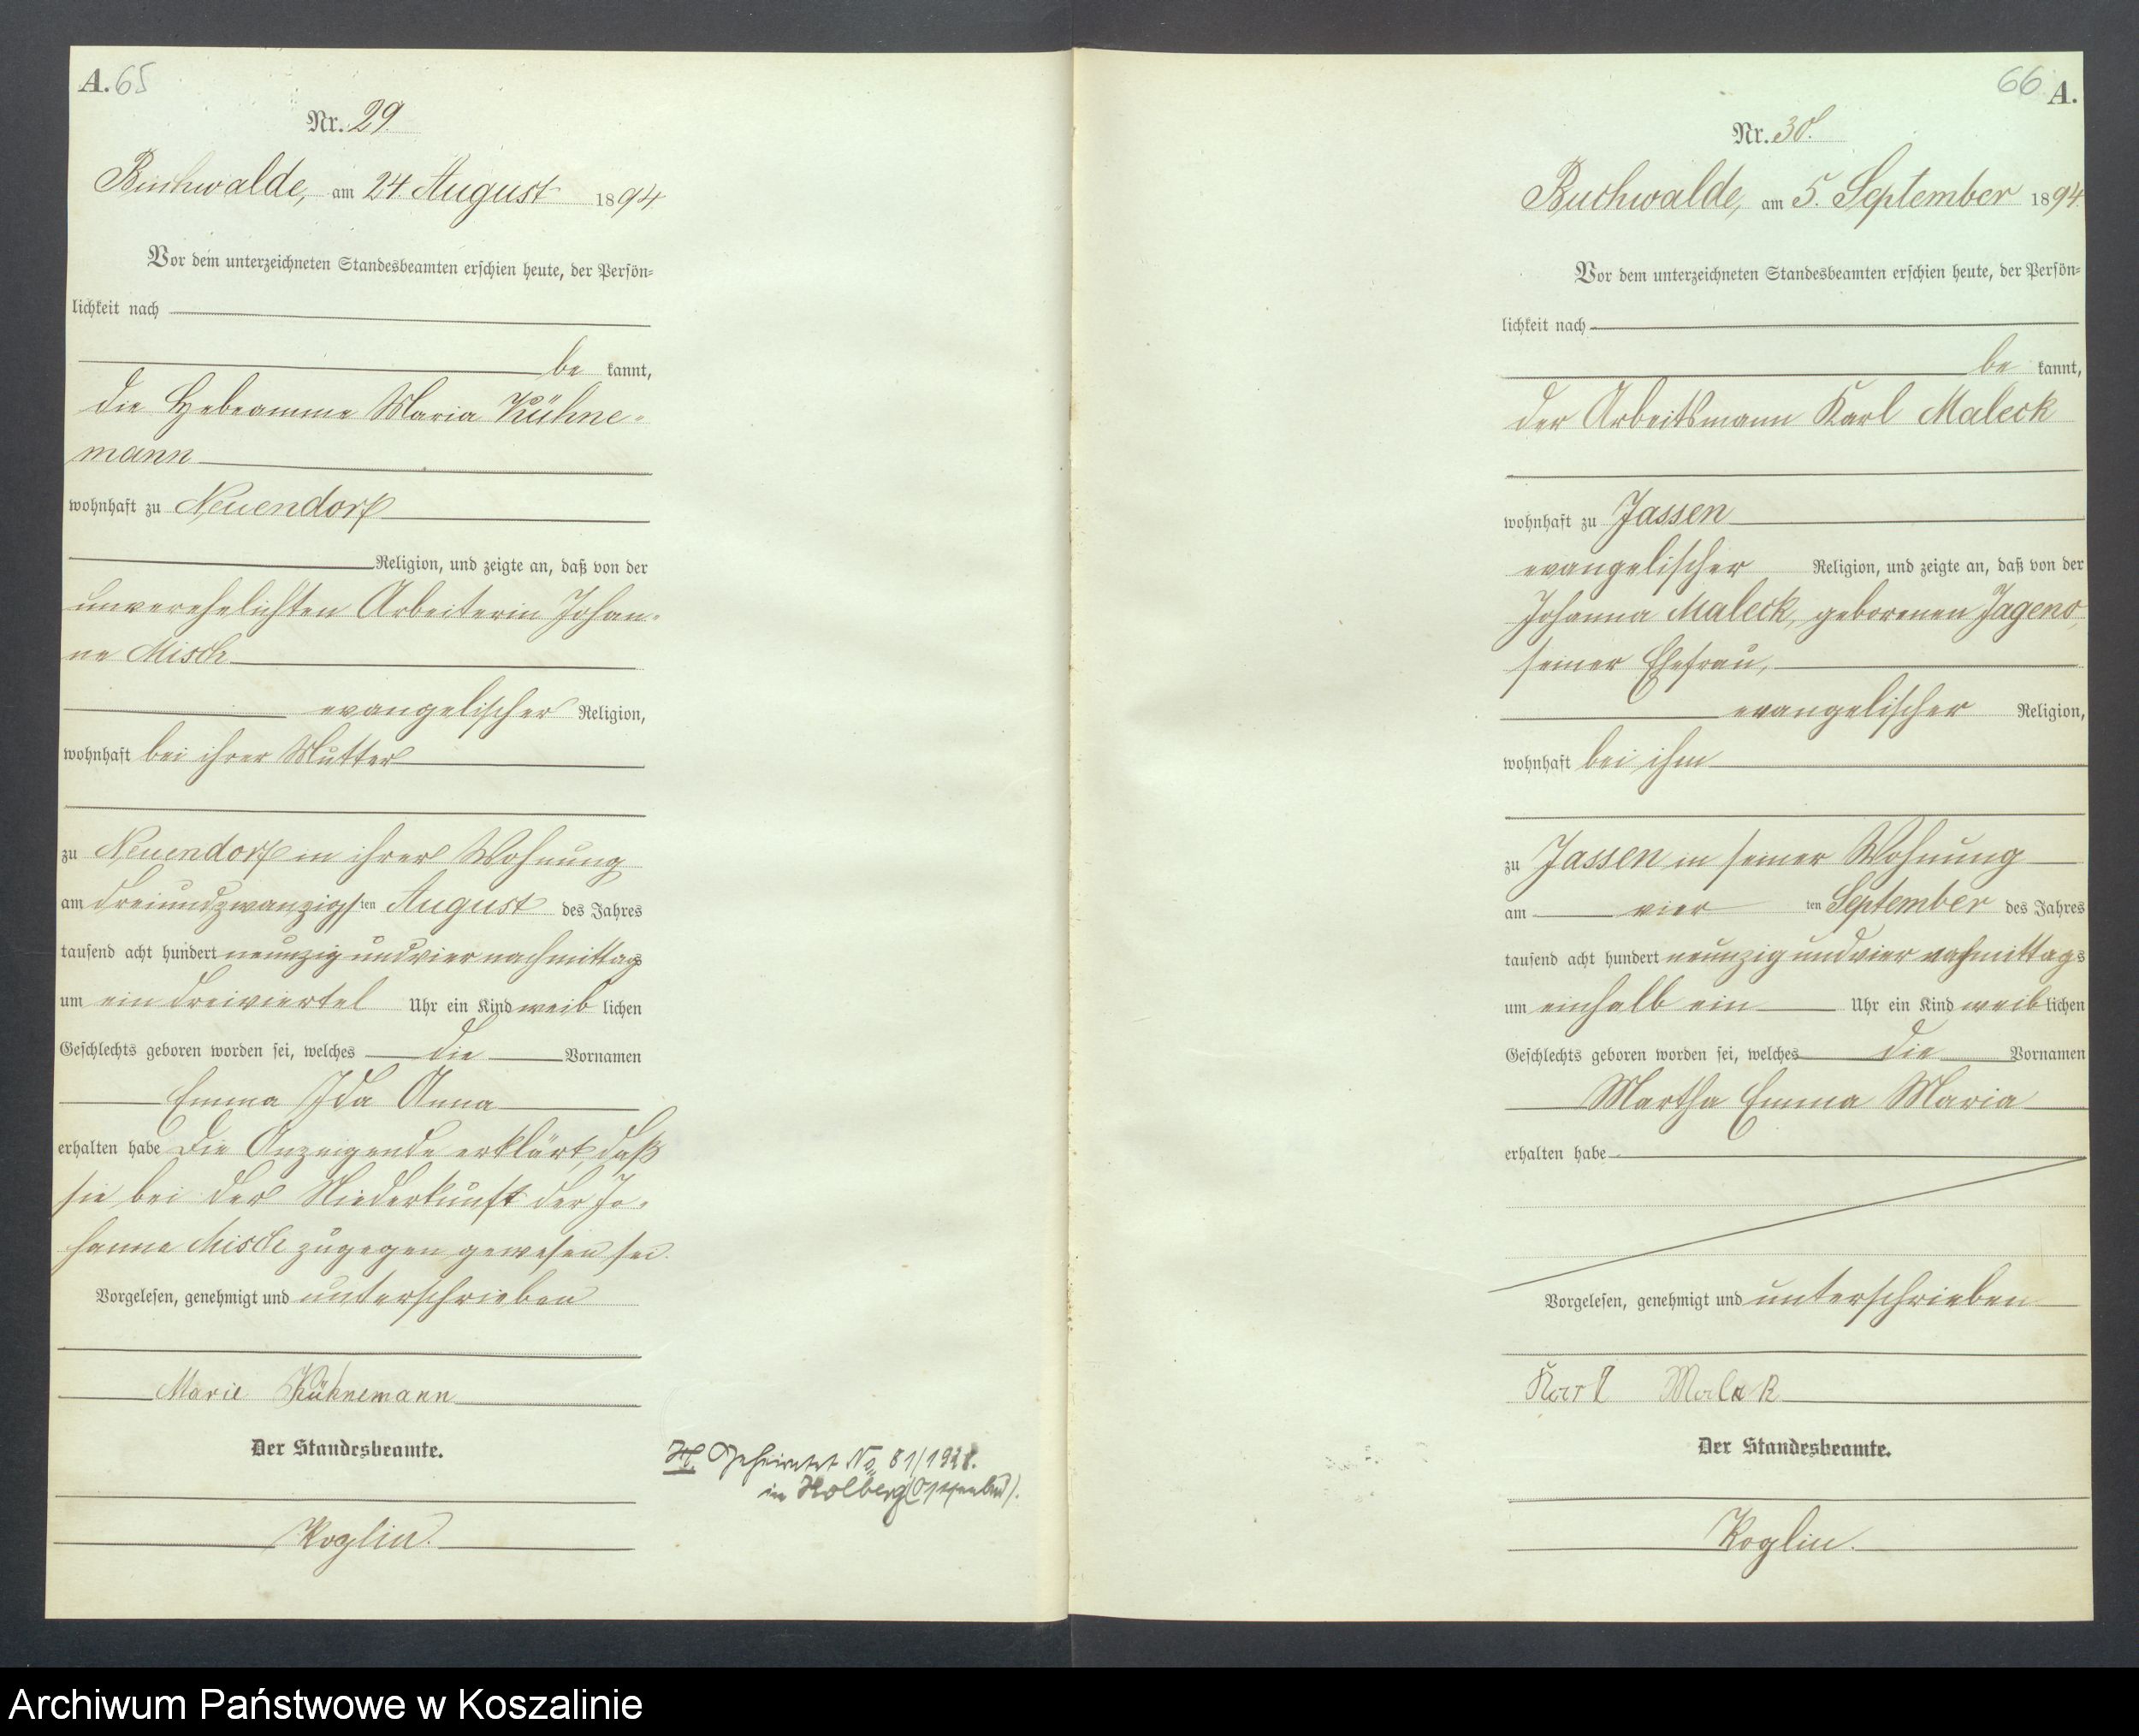 A. 65
Nr. 29.
Buchwalde, am 24. August 1894.
Vor dem unterzeichneten Standesbeamten erschien heute, der Persön-
lichkeit nach
be kannt,
die Hebeamme Maria Kühne-
mann
wohnhaft zu Neuendorf
Religion, und zeigte an, daß von der
unverehelichten Arbeiterin Johan-
ne Misch
evangelischer Religion,
wohnhaft bei ihrer Mutter
zu Neuendorf in ihrer Wohnung
am dreiundzwanzigs ten August des Jahres
tausend acht hundert neunzig und vier nachmittags
um ein dreiviertel Uhr ein Kind weib lichen
Geschlechts geboren worden sei, welches die Vornamen
Emma Ida Anna
erhalten habe Die Anzeigende erklärt, daß
sie bei der Niederkunft der Jo-
hanne Misch zugegen gewesen sei.
Vorgelesen, genehmigt und unterschrieben
Marie Kühnemann
Der Standesbeamte.
Koglin.
Geheiratet No 81/1928.
in Kolberg
66 A.
Nr. 30.
Buchwalde, am 5. September 1894.
Vor dem unterzeichneten Standesbeamten erschien heute, der Persön-
lichkeit nach
be kannt,
der Arbeitsmann Karl Maleck
wohnhaft zu Jassen
evangelischer Religion, und zeigte an, daß von der
Johanna Maleck, geborenen Jageno,
seiner Ehefrau,
evangelischer Religion,
wohnhaft bei ihm
zu Jassen in seiner Wohnung
am vier ten September des Jahres
tausend acht hundert neunzig und vier nachmittags
um einhalb ein Uhr ein Kind weib lichen
Geschlechts geboren worden sei, welches die Vornamen
Martha Emma Maria
erhalten habe
Vorgelesen, genehmigt und unterschrieben
Karl Malek
Der Standesbeamte.
Koglin.
Archiwum Państwowe w Koszalinie